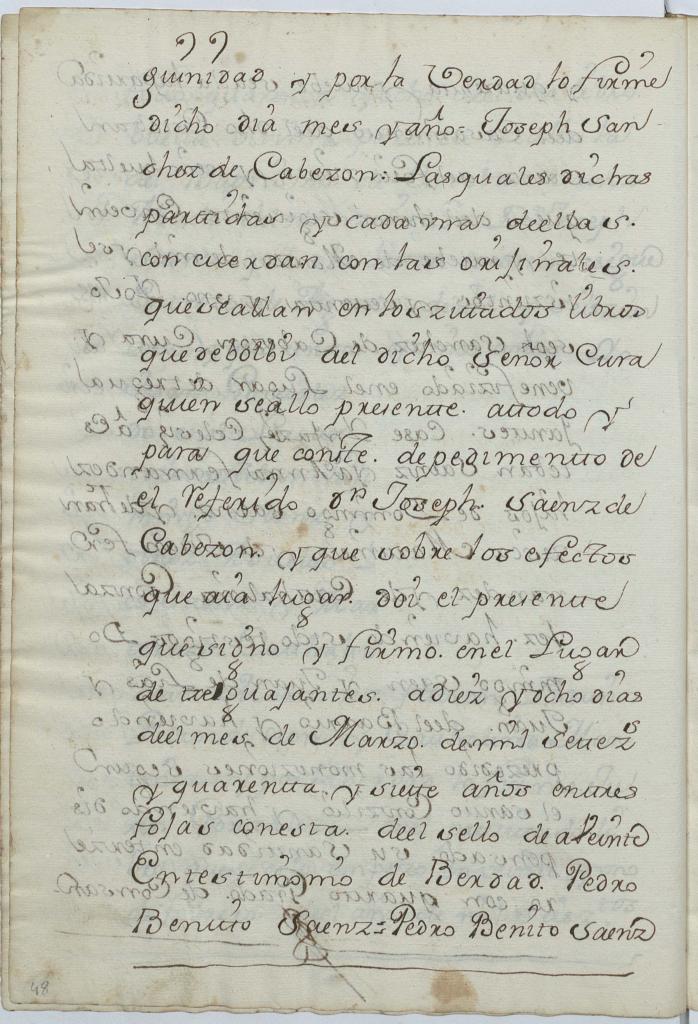 guinidad y por la Verdad lo firme
dicho dia mes y año = Joseph San
chez de Cabezon: Las quales dichas
partidas y cada vna deellas.
concuerdan con las orijinales.
que seallan en los zitados libros
que debolbi ael dicho Señor Cura
quien seallo presente. attodo y
para que conste. depedimento de
el referido Dn Joseph. Saenz de
Cabezon. y que sobre los efectos
que aia lugar. doi el presente
que signo y firmo. en el Lugar
de treguajantes. a diez y ocho dias
deel mes de Marzo. de mil Settezs
y quarenta y siette años en tres
fojas con esta. deel sello de a Veinte
En testimonio de Berdad. Pedro
Benito Saenz = Pedro Benito Saenz
48